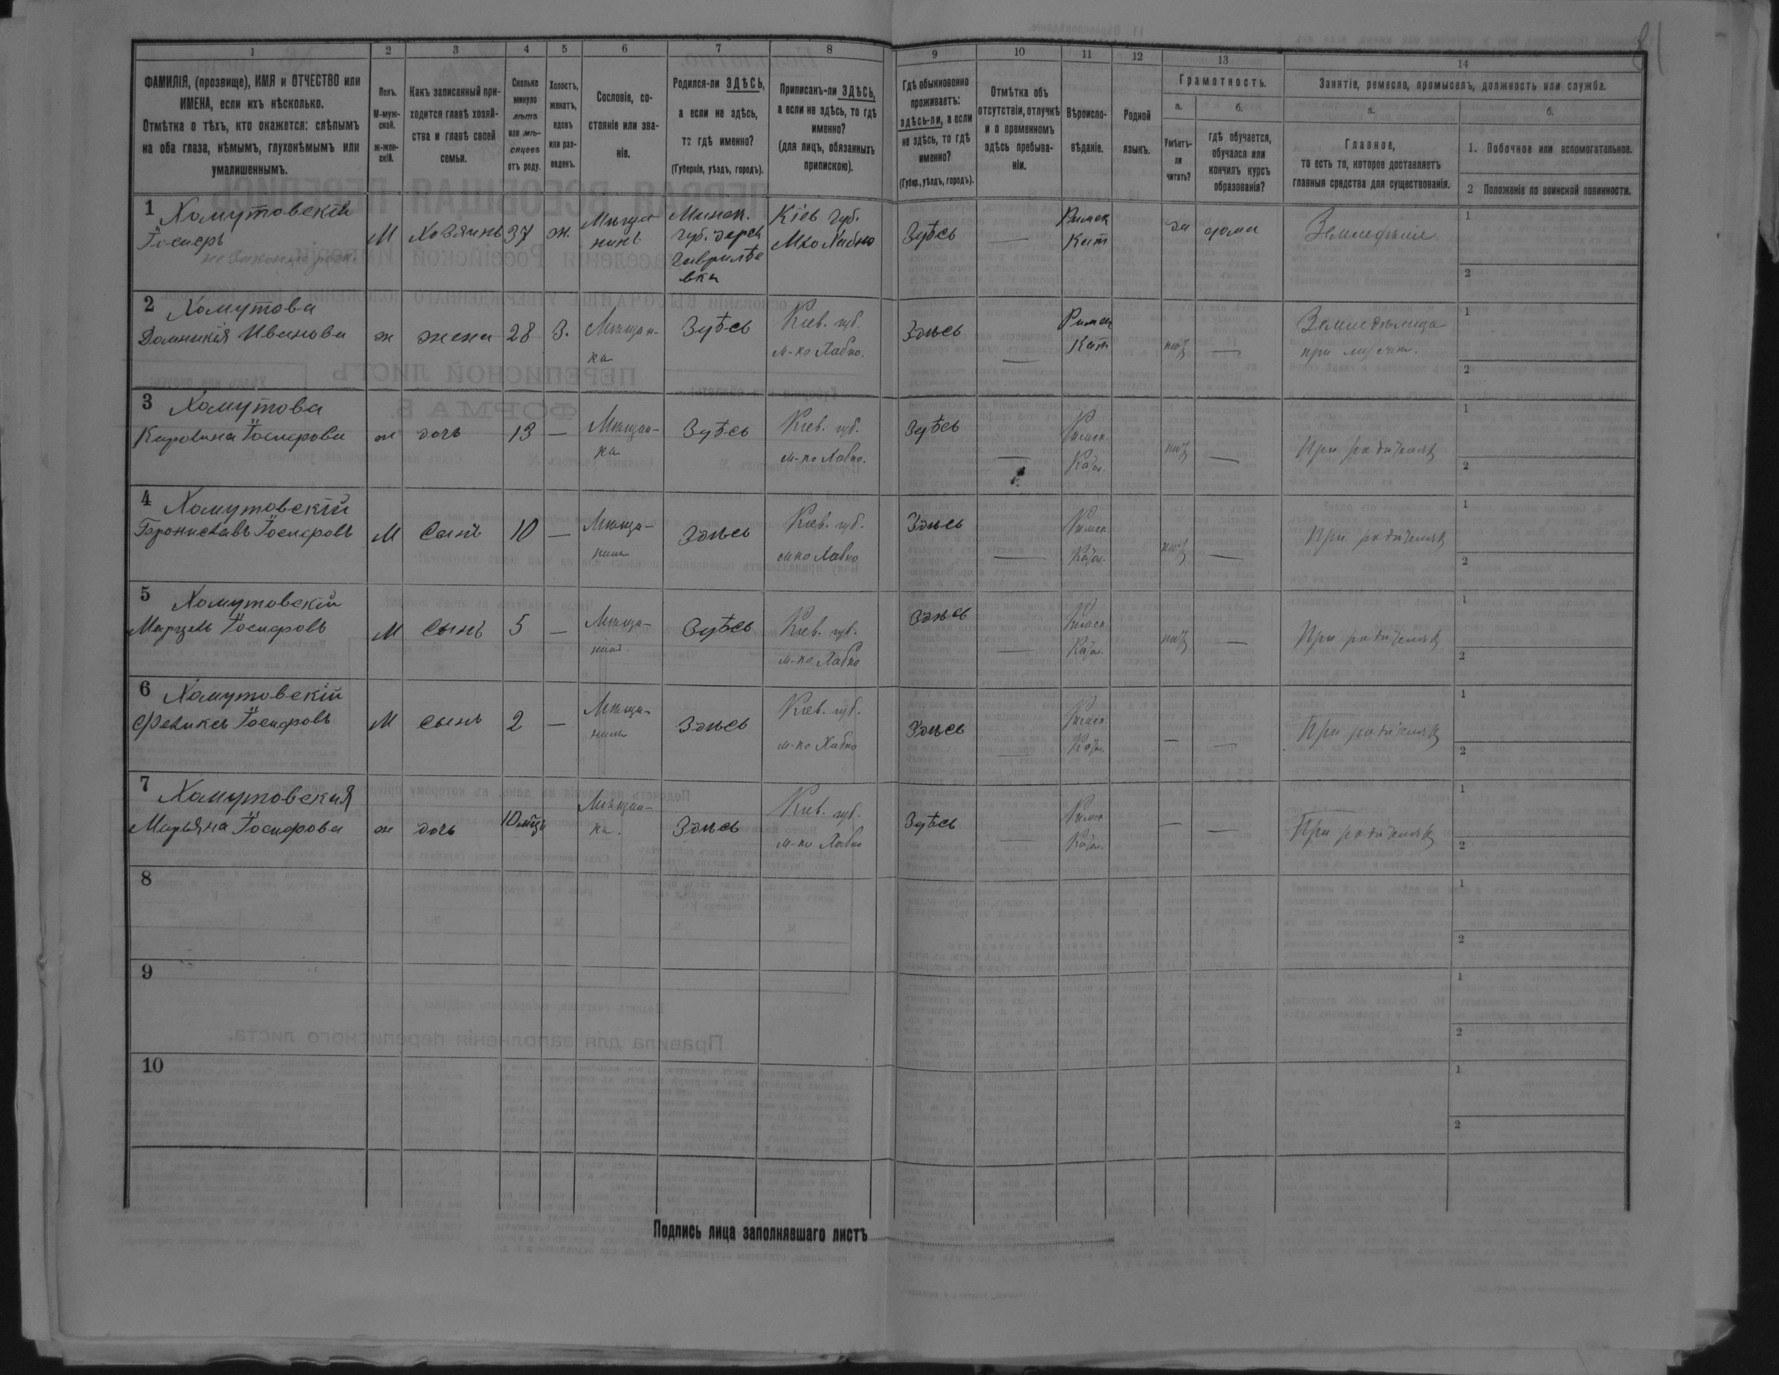 81
1
2
3
4
5
6
7
8
9
10
11
12
13
14
ФАМИЛІЯ, (прозвище), ИМЯ и ОТЧЕСТВО или
ИМЕНА, если ихъ нѣсколько.
Отмѣтка о тѣхъ, кто окажется: слѣпымъ
на оба глаза, нѣмымъ, глухонѣмымъ или
умалишеннымъ.
Полъ.
М-муж-
ской.
ж-жен-
скій.
Какъ записанный при-
ходится главѣ хозяй-
ства и главѣ своей
семьи.
Сколько
минуло
лѣтъ
или мѣ-
сяцевъ
отъ роду.
Холостъ,
женатъ,
вдовъ
или раз-
веденъ.
Сословіе, со-
стояніе или зва-
ніе.
Родился-ли ЗДѢСЬ,
а если не здѣсь,
то гдѣ именно?
(Губернія, уѣздъ, городъ).
Приписанъ-ли ЗДѢСЬ,
а если не здѣсь, то гдѣ
именно?
(для лицъ, обязанныхъ
припискою).
Гдѣ обыкновенно
проживаетъ:
здѣсь-ли, а если
не здѣсь, то гдѣ
именно?
(Губер., уѣздъ, городъ).
Отмѣтка объ
отсутствіи, отлучкѣ
и о временномъ
здѣсь пребыва-
ніи.
Вѣроиспо-
вѣданіе.
Родной
языкъ.
Грамотность.
а.
Умѣетъ-
ли
читать?
б.
гдѣ обучается,
обучался или
кончилъ курсъ
образованія?
Занятіе, ремесло, промыселъ, должность или служба.
а.
Главное,
то есть то, которое доставляетъ
главныя средства для существованія.
б.
1. Побочное или вспомогательное.
2 Положеніе по воинской повинности.
1 Хомутовскій
Іосифъ
М Хозяинъ 37 ж. Мѣща
нинъ
Минск.
губ. дерев
Гаврилѣ
вка
Кіев губ.
М-ко Хабно
Здѣсь —
Римск
Кат
да дома Земледѣліе
1
2
2 Хомутова
Доминикія Иванова ж жена 28 З. Мѣщан-
ка
Здѣсь
Кіев. губ.
м-ко Хабно.
Здѣсь —
Римск
Кат
нѣт —
Земледѣлица
при муж
1
2
3 Хомутова
Каролина Іосифова ж дочь 13 — Мѣщан-
ка
Здѣсь
Кіев. губ.
м-ко Хабно.
Здѣсь —
Римск
Като.
нѣт — При родителях
1
2
4 Хомутовскій
Брониславъ Іосифовъ М Сынъ 10 — Мѣща-
нинъ
Здѣсь
Кіев. губ.
м-ко Хабно
Здѣсь —
Римск
Като.
нѣт — При родителях
1
2
5 Хомутовскій
Марцель Іосифовъ М Сынъ 5 — Мѣща-
нин
Здѣсь
Кіев. губ.
м-ко Хабно
Здѣсь —
Римск
Като.
нѣт — При родителях
1
2
6 Хомутовскій
Феликсъ Іосифовъ М Сынъ 2 — Мѣща-
нинъ
Здѣсь
Кіев. губ.
м-ко Хабно
Здѣсь —
Римск
Като.
— — При родителях
1
2
7 Хомутовская
Марьяна Іосифова ж дочь 10 мѣц. Мѣщан-
ка.
Здѣсь
Кіев. губ.
м-ко Хабно
Здѣсь —
Римск
Като.
— — При родителях
1
2
8
1
2
9
1
2
10
1
2
Подпись лица заполнявшаго листъ